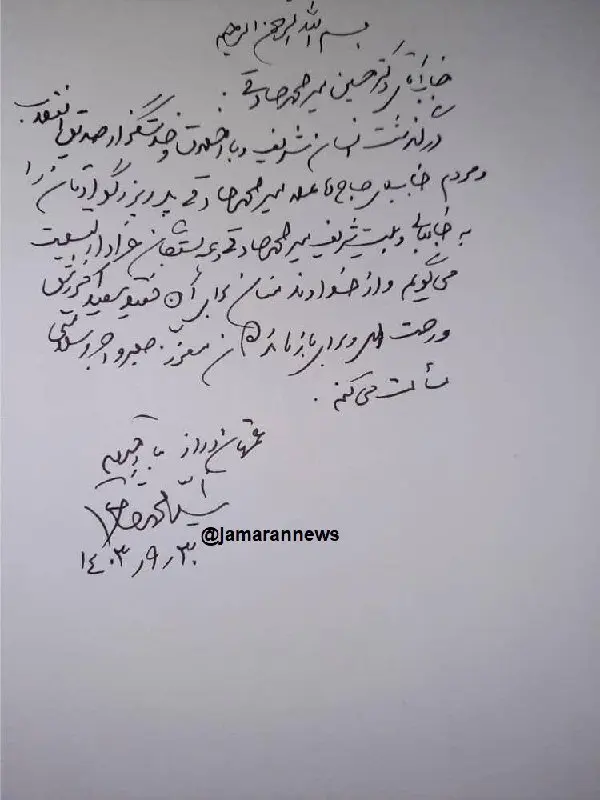 بسم الله الرحمن الرحیم
جناب آقای دکتر حسین میرمحمدصادقی
درگذشت انسان شریف و با اخلاص و خدمتگزار صدیق انقلاب
و مردم جناب حاج میرمحمدصادقی پدر بزرگوارتان را
به جنابعالی و بیت شریف میرمحمدصادقی و بستگان عزادار تسلیت
می‌گویم و از خداوند منان برای آن فقید سعید
و رحمت الهی و برای بازماندگان معزز صبر و اجر و سلامتی
مسألت می‌کنم.
عمرتان دراز باد
سید محمد خاتمی
۱۴۰۳ر۹ر۳۰
@jamarannews